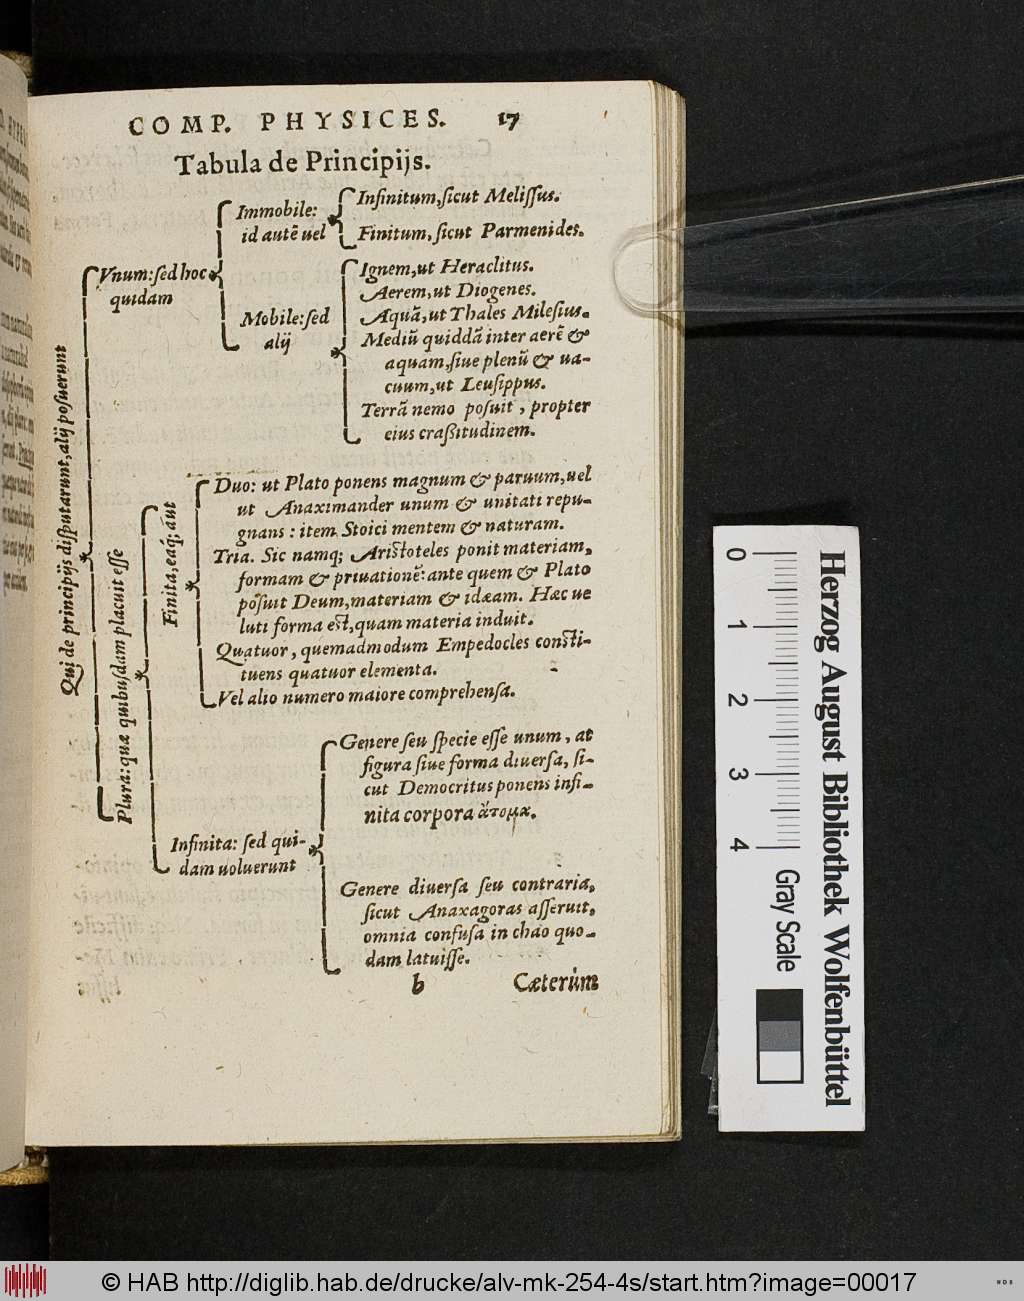 COMP. PHYSICES. 17
Tabula de Principijs.
Qui de principijs disputarunt, alij posuerunt
Vnum: sed hoc
quidam
Immobile:
id autē uel
Infinitum, sicut Melissus.
Finitum, sicut Parmenides.
Mobile: sed
alij
Ignem, ut Heraclitus.
Aerem, ut Diogenes.
Aquā, ut Thales Milesius.
Mediū quiddā inter aerē &
aquam, siue plenū & ua-
cuum, ut Leusippus.
Terrā nemo posuit, propter
eius craßitudinem.
Plura: quæ quibusdam placuit esse
Finita, eaq́; aut
Duo: ut Plato ponens magnum & paruum, uel
ut Anaximander unum & unitati repu-
gnans: item Stoici mentem & naturam.
Tria. Sic namq; Aristoteles ponit materiam,
formam & priuationē: ante quem & Plato
posuit Deum, materiam & idæam. Hæc ue
luti forma est, quam materia induit.
Quatuor, quemadmodum Empedocles consti-
tuens quatuor elementa.
Vel alio numero maiore comprehensa.
Infinita: sed qui-
dam uoluerunt
Genere seu specie esse unum, at
figura siue forma diuersa, si-
cut Democritus ponens infi-
nita corpora ἄτομα.
Genere diuersa seu contraria,
sicut Anaxagoras asseruit,
omnia confusa in chao quo-
dam latuisse.
b Cæterùm
0 1 2 3 4
Gray Scale
Herzog August Bibliothek Wolfenbüttel
© HAB http://diglib.hab.de/drucke/alv-mk-254-4s/start.htm?image=00017